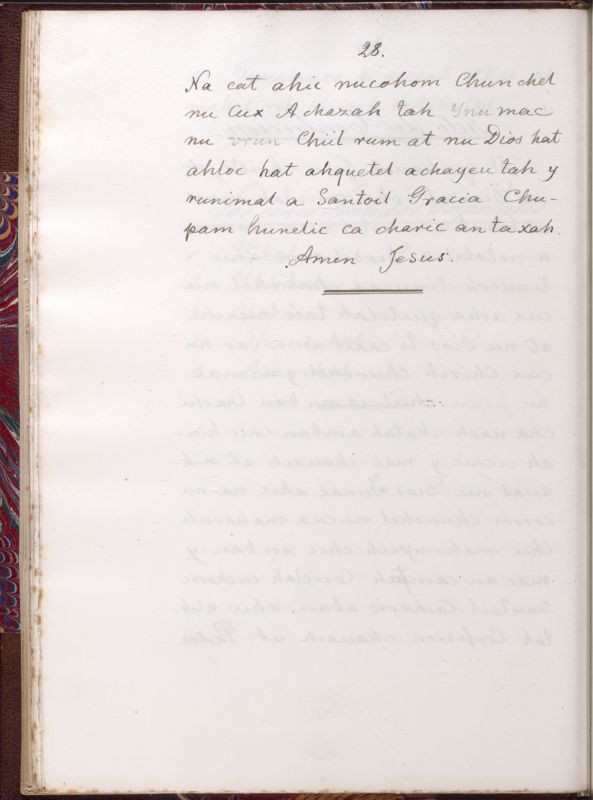 28.
Na cat ahic nucohom Chunchel
nu Cux Achazah tah Ynumac
nu vrun Chiil rum at nu Dios hat
ahloc hat ahquetel achayeu tah y
runimal a Santoil Gracia Chu-
pam hunelic ca charic an ta xah.
Amen Jesus.